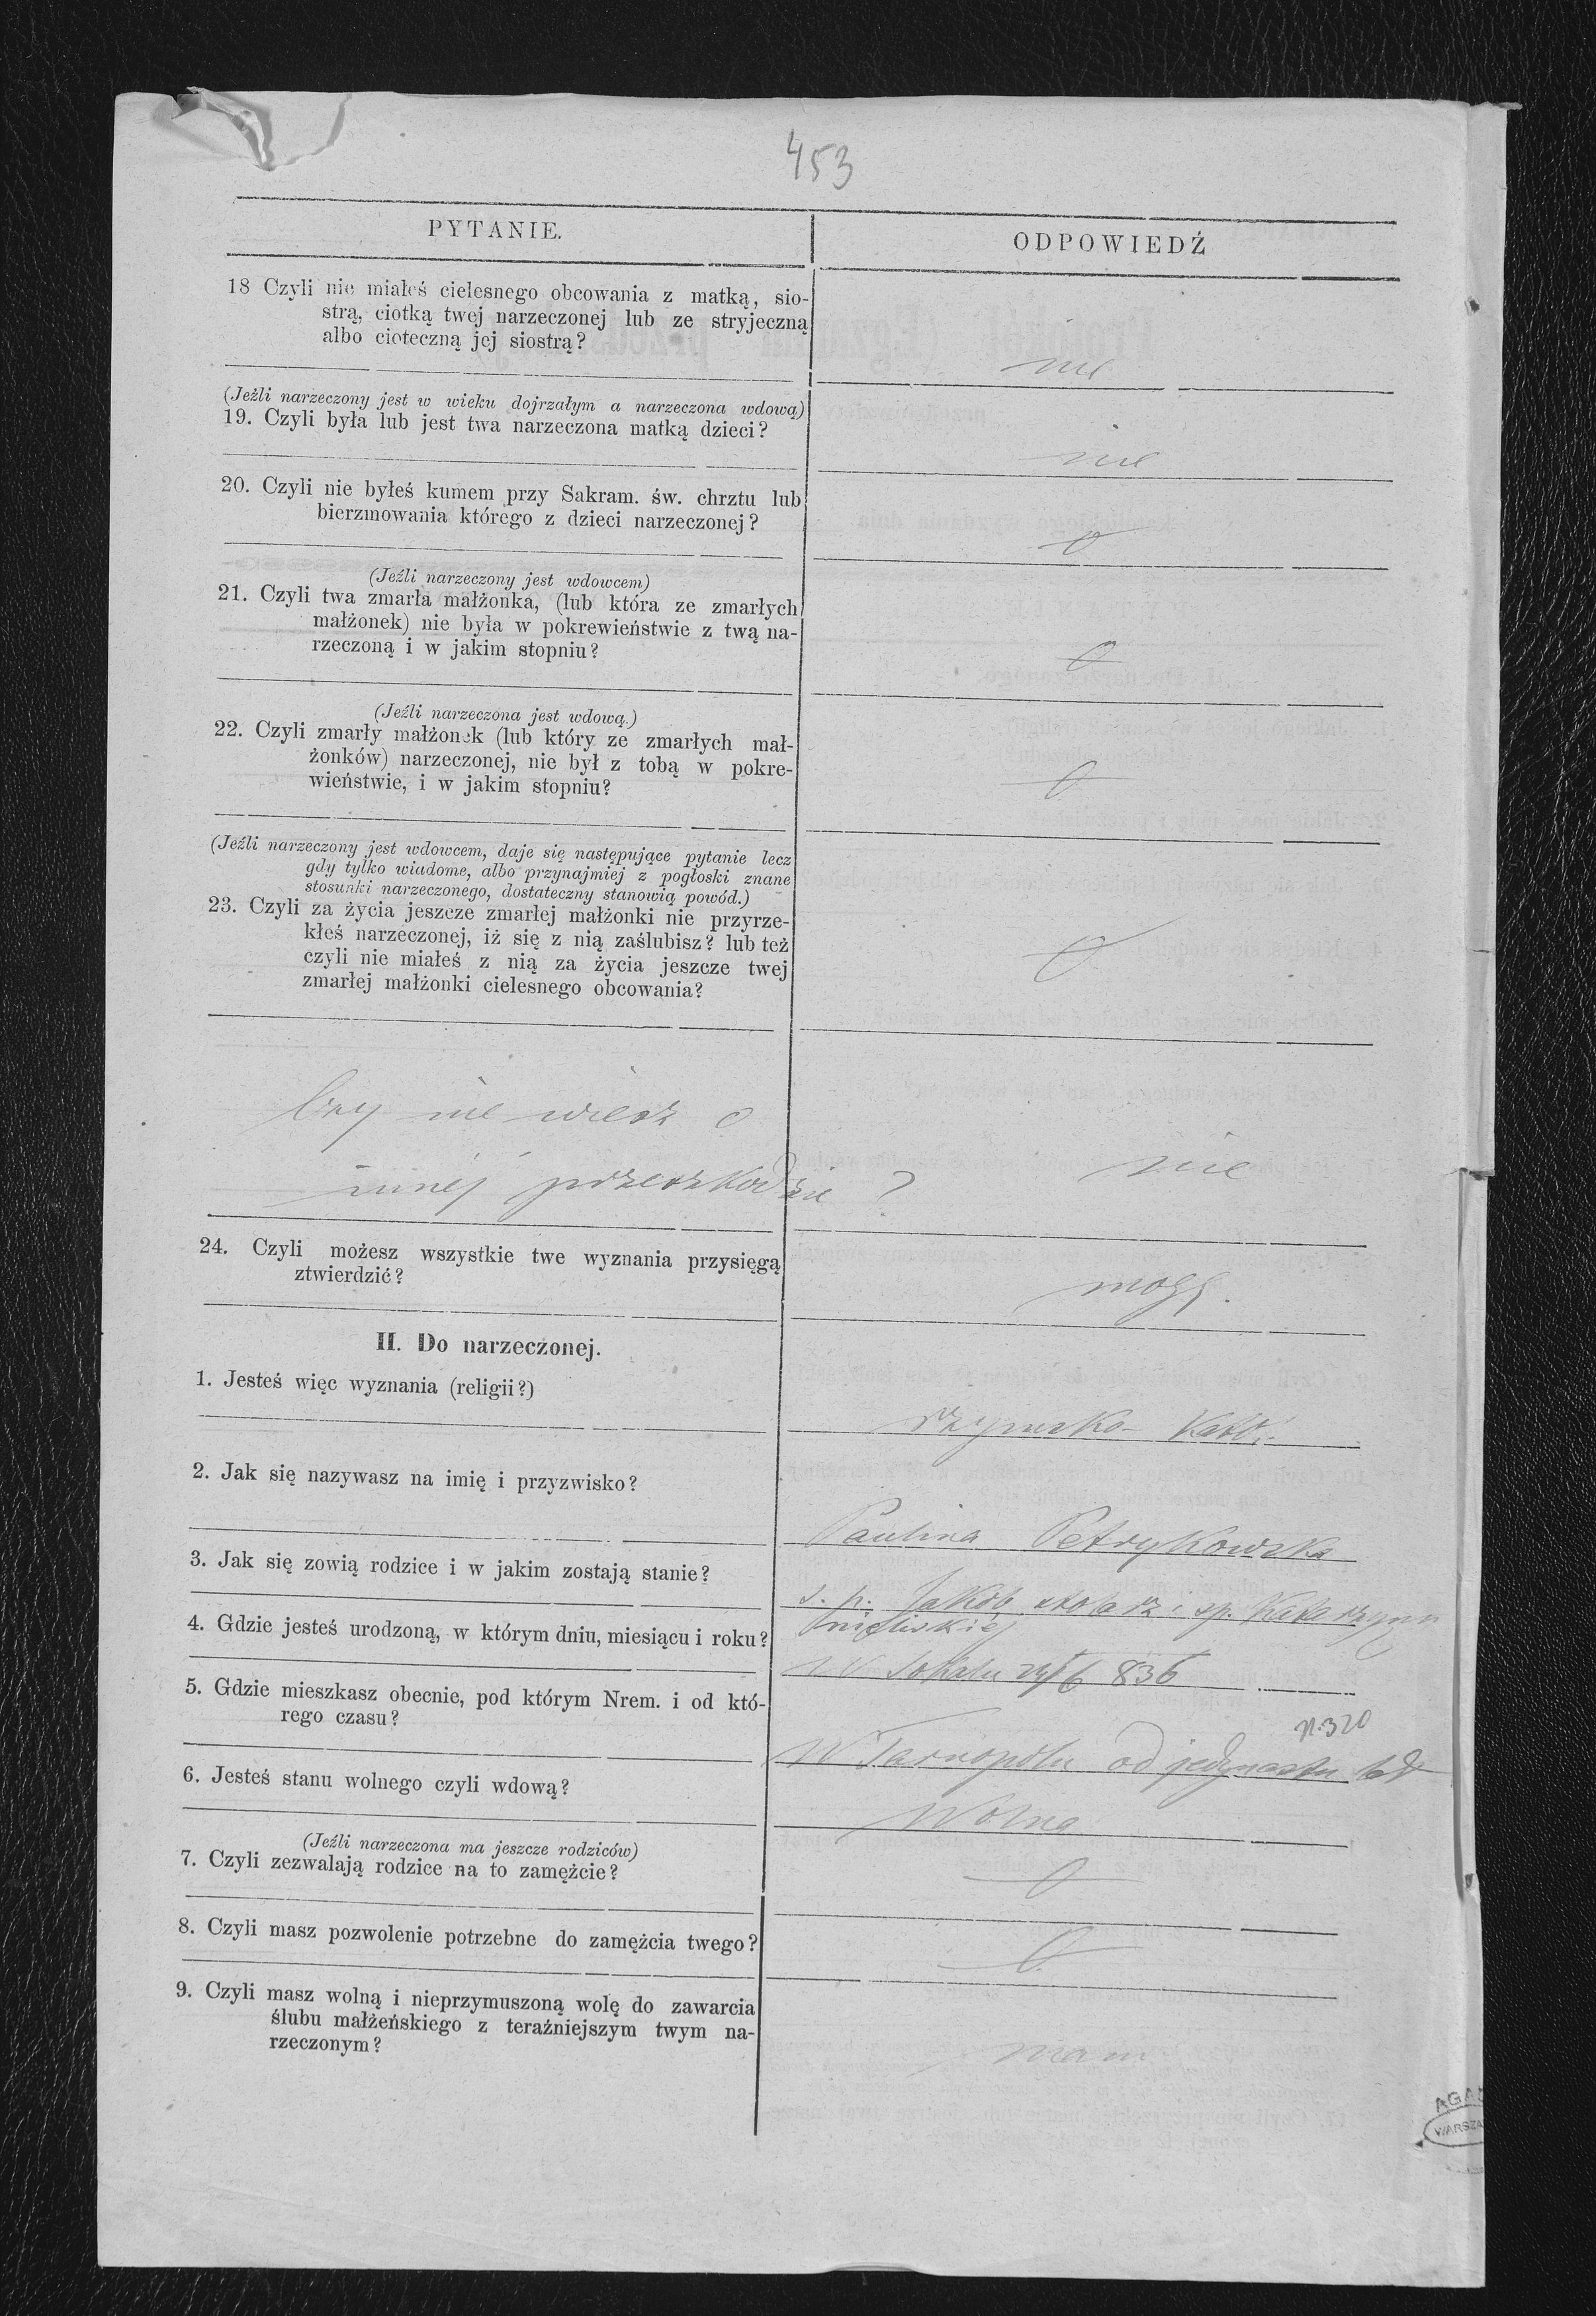 453
PYTANIE.
ODPOWIEDŹ
18 Czyli nie miałeś cielesnego obcowania z matką, sio-
strą, ciotką twej narzeczonej lub ze stryjeczną
albo cioteczną jej siostrą?
nie
(Jeźli narzeczony jest w wieku dojrzałym a narzeczona wdową)
19. Czyli była lub jest twa narzeczona matką dzieci?
nie
20. Czyli nie byłeś kumem przy Sakram. św. chrztu lub
bierzmowania którego z dzieci narzeczonej?
(Jeźli narzeczony jest wdowcem)
21. Czyli twa zmarła małżonka, (lub która ze zmarłych
małżonek) nie była w pokrewieństwie z twą na-
rzeczoną i w jakim stopniu?
(Jeźli narzeczona jest wdową.)
22. Czyli zmarły małżonek (lub który ze zmarłych mał-
żonków) narzeczonej, nie był z tobą w pokre-
wieństwie, i w jakim stopniu?
(Jeźli narzeczony jest wdowcem, daje się następujące pytanie lecz
gdy tylko wiadome, albo przynajmiej z pogłoski znane
stosunki narzeczonego, dostateczny stanowią powód.)
23. Czyli za życia jeszcze zmarłej małżonki nie przyrze-
kłeś narzeczonej, iż się z nią zaślubisz? lub też
czyli nie miałeś z nią za życia jeszcze twej
zmarłej małżonki cielesnego obcowania?
Czy nie wiesz o
innej przeszkodzie ?
nie
24. Czyli możesz wszystkie twe wyznania przysięgą
ztwierdzić?
mogę.
II. Do narzeczonej.
1. Jesteś więc wyznania (religii?)
rzymsko-katol.
2. Jak się nazywasz na imię i przyzwisko?
Paulina Petrykowska
3. Jak się zowią rodzice i w jakim zostają stanie?
s. p. Jakób stolarz i sp. Katarzyny
4. Gdzie jesteś urodzoną, w którym dniu, miesiącu i roku?
w Sokalu 836
5. Gdzie mieszkasz obecnie, pod którym Nrem. i od któ-
rego czasu?
N. 320
w Tarnopolu od jedynastu lat
6. Jesteś stanu wolnego czyli wdową?
Wolna
(Jeźli narzeczona ma jeszcze rodziców)
7. Czyli zezwalają rodzice na to zamężcie?
8. Czyli masz pozwolenie potrzebne do zamężcia twego?
9. Czyli masz wolną i nieprzymuszoną wolę do zawarcia
ślubu małżeńskiego z teraźniejszym twym na-
rzeczonym?
mam
AGAD
WARSZA